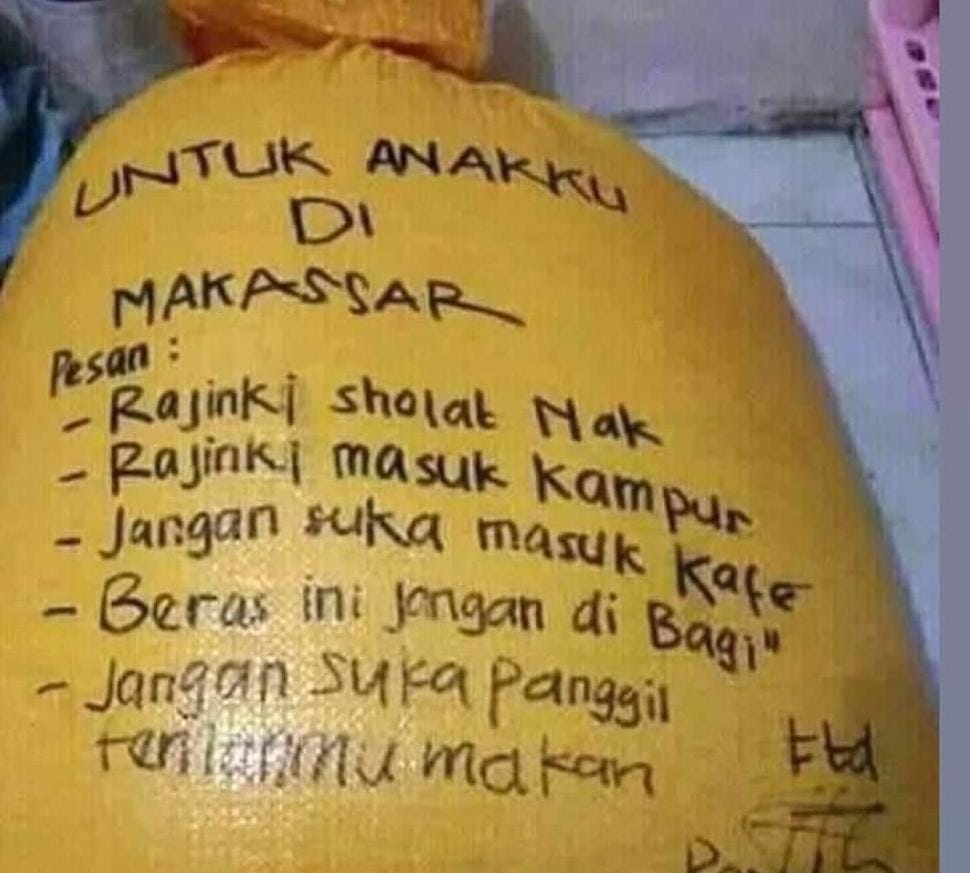 UNTUK ANAKKU
DI
MAKASSAR
Pesan :
- Rajinki sholat Nak
- Rajinki masuk kampus
- Jangan suka masuk Kafe
- Beras ini jangan di Bagi"
- Jangan suka panggil
temanmu makan
ttd